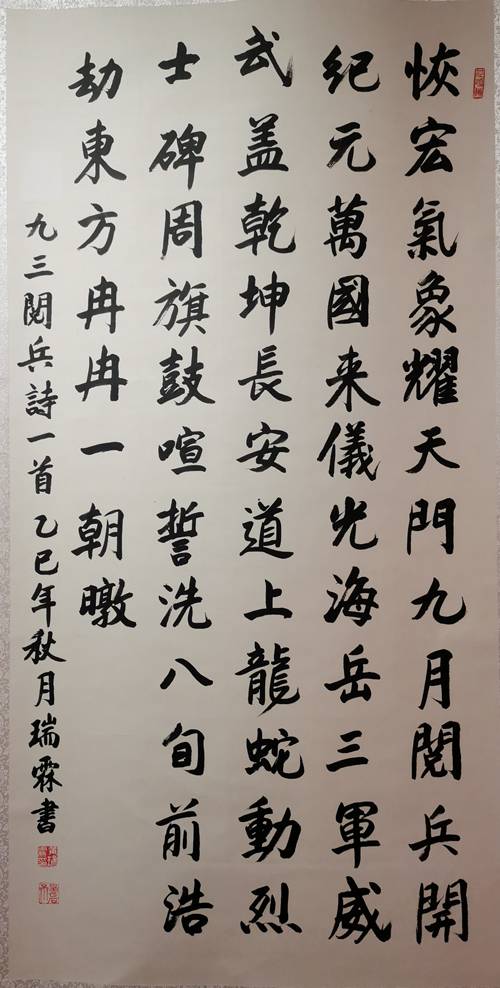 恢宏氣象耀天門九月閱兵開
紀元萬國来儀光海岳三軍威
武蓋乾坤長安道上龍蛇動烈
士碑周旗鼓喧誓洗八旬前浩
劫東方冉冉一朝暾
九三閱兵詩一首乙巳年秋月瑞霖書